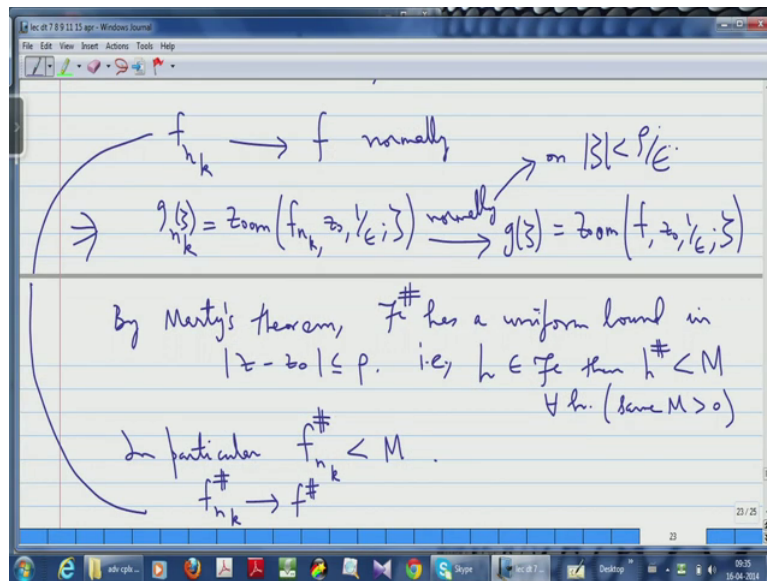 lec dt 7 8 9 11 15 apr - Windows Journal
File Edit View Insert Actions Tools Help
f_{n_k} → f normally
on |ζ| < ρ/ε
⇒ g_{n_k}(ζ) = Zoom(f_{n_k}, z₀, 1/ε; ζ) normally → g(ζ) = Zoom(f, z₀, 1/ε; ζ)
By Marty's theorem, ℱ^# has a uniform bound in
|z - z₀| ≤ ρ. i.e., h ∈ ℱ then h^# < M
∀ h. (same M > 0)
In particular f^#_{n_k} < M.
f^#_{n_k} → f^#
23/25
23
adv cplx ...
Skype
lec dt 7 ...
Desktop
09:35
16-04-2014